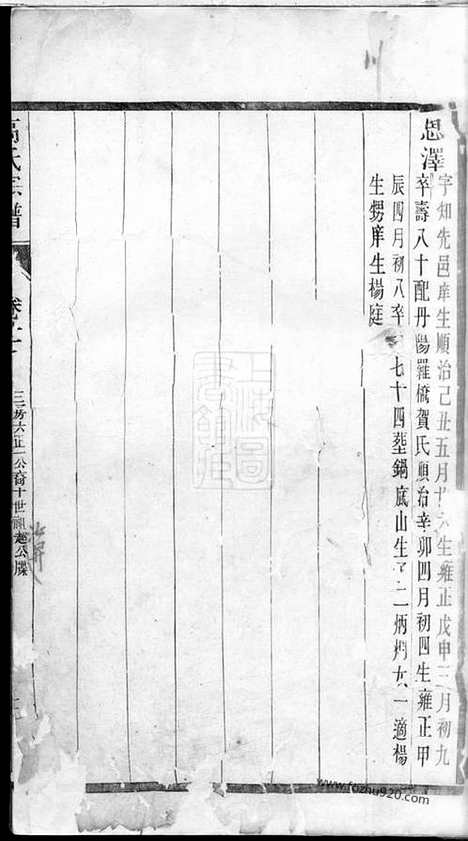 思澤
字知先邑庠生順治己丑五月廿六生雍正戊申三月初九
卒壽八十配丹陽羅橋賀氏順治辛卯四月初四生雍正甲
辰四月初八卒 七十四葬鍋底山生子二炳 女一適楊
生甥庠生楊庭
高氏宗譜
卷十
三房六正一公裔十世 公牒
上海圖書館藏
www.fozhu920.com